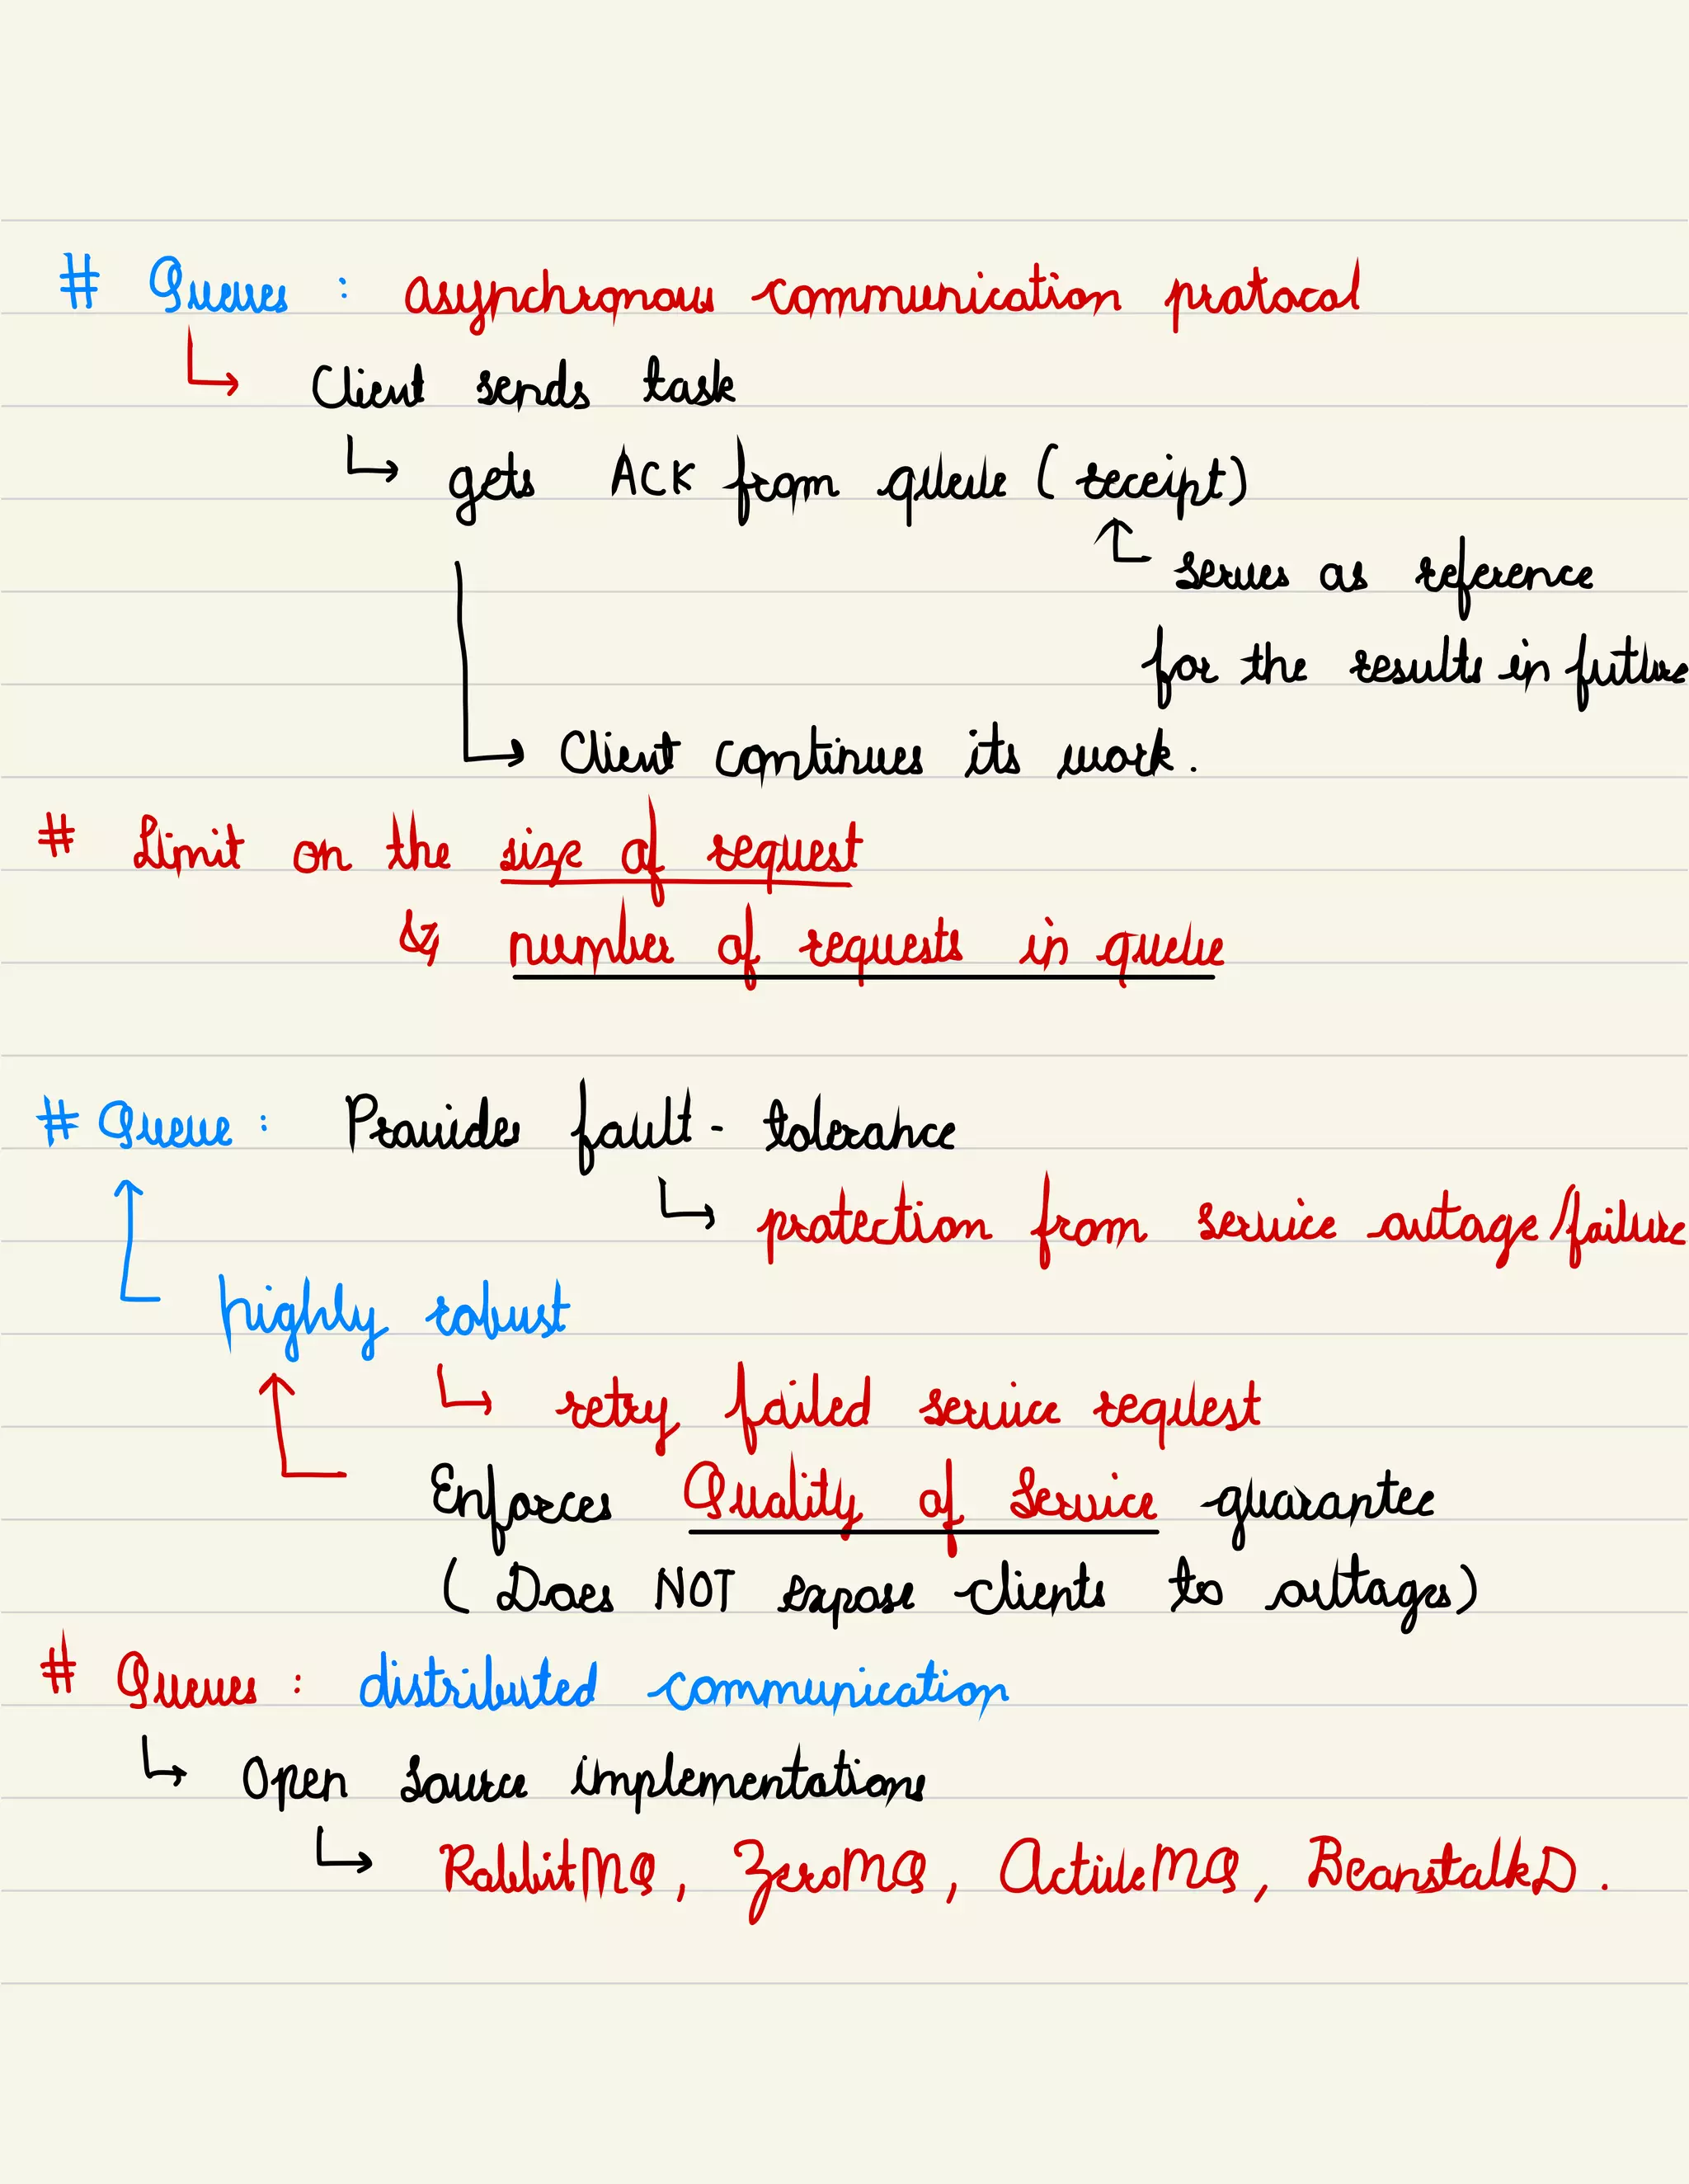 # Queues : asynchronous communication protocol
↳ Client sends task
↳ gets ACK from queue (receipt)
serves as reference
for the results in future
↳ Client continues its work.
# Limit on the size of request
& number of requests in queue
# Queue : Provides fault-tolerance
↳ protection from service outage/failure
highly robust
↳ retry failed service request
Enforces Quality of Service guarantee
(Does NOT expose clients to outages)
# Queues : distributed communication
↳ Open source implementations
↳ RabbitMQ, ZeroMQ, ActiveMQ, BeanstalkD.